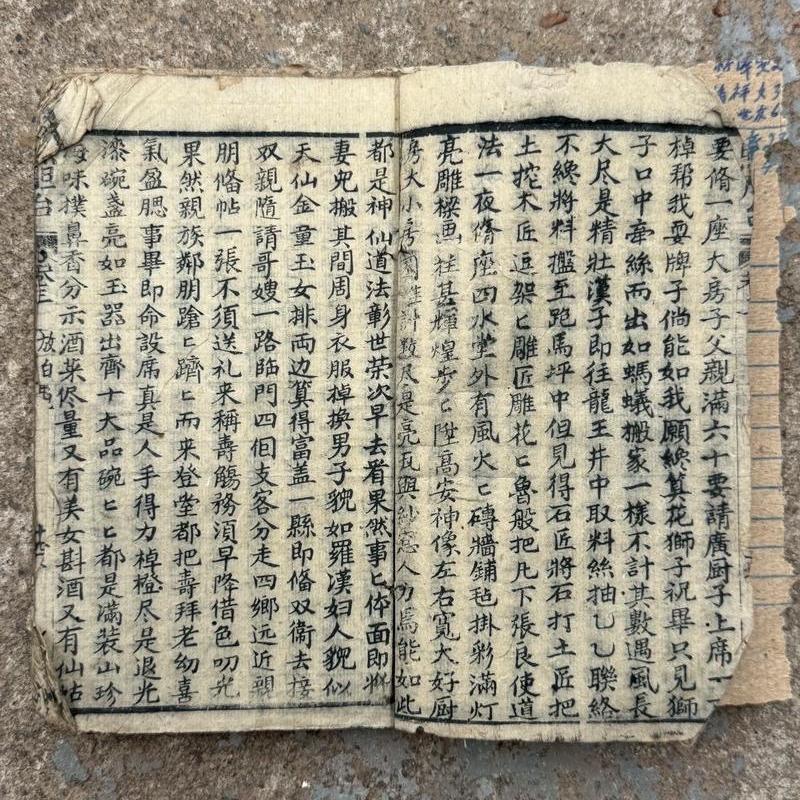 要脩一座大房子父親滿六十要請廣厨子上席一
棹帮我耍牌子倘能如我願終算花獅子祝畢只見獅
子口中牽絲而出如螞蟻搬家一樣不計其數遇風長
大尽是精壯漢子即往龍王井中取料絲抽乚乚聯絡
不絶將料擡至跑馬坪中但見得石匠將石打土匠把
土挖木匠逗架匕雕匠雕花匕魯般把凡下張良使道
法一夜脩座四水堂外有風火匕磚牆鋪毡掛彩滿灯
亮雕樑画柱甚輝煌步匕陞高安神像左右寬大好厨
房大小房尽是亮瓦與紗窓人力焉能如此
都是神仙道法彰世荣次早去看果然事匕体面即將
妻兜搬其間周身衣服棹換男子貌如羅漢妇人貌似
天仙金童玉女排両边算得富盖一縣即俻双衞去接
双親隨請哥嫂一路臨門四佪支客分走四鄉远近親
朋俻帖一張不須送礼来稱壽觴務須早降借色叨光
果然親族鄰朋蹌匕躋匕而来登堂都把壽拜老幼喜
氣盈腮事畢即命設席真是人手得力棹櫈尽是退光
漆碗盞亮如玉器出齊十大品碗匕匕都是滿装山珍
海味撲鼻香分示酒菜侭量又有美女斟酒又有仙姑
放白